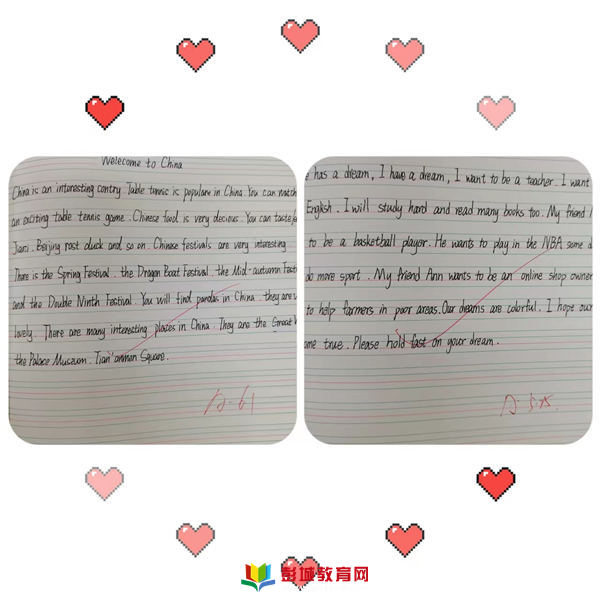 Welecome to China
China is an interesting contry. Table tennis is populare in China. You can watch
an exciting table tennis game. Chinese food is very decious. You can taste
Jiaozi. Beijing rost duck and so on. Chinese festivals are very interesting.
There is the Spring Festival. the Dragon Boat Festival. the Mid-autumn Fest
and the Double Ninth Festival. You will find pandas in China. they are v
lovely. There are many interesting places in China. They are the Great W
the Palace Museum. Tian'anmen Square.
A-6.1
e has a dream, I have a dream, I want to be a teacher. I want
English. I will study hard and read many books too. My friend
to be a basketball player. He wants to play in the NBA some d
do more sport. My friend Ann wants to be an online shop owner
to help farmers in poor areas. Our dreams are colorful. I hope our
ome true. Please hold fast on your dream.
彭城教育网